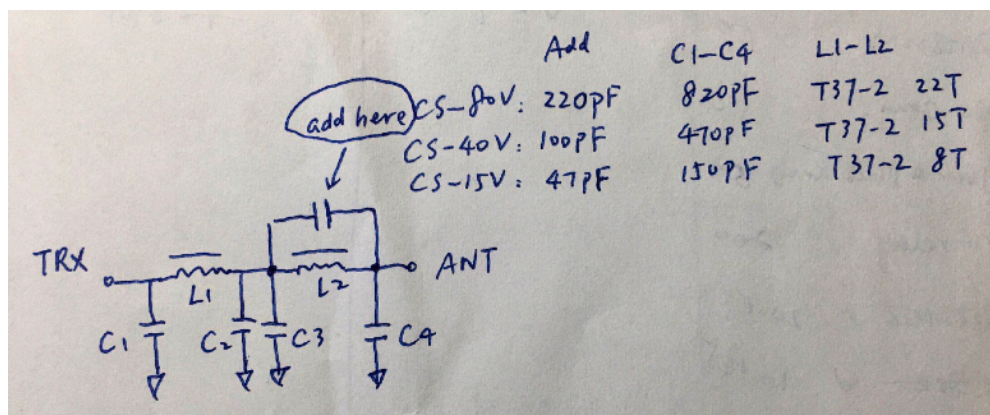 Add C1-C4 L1-L2
add here
CS-80V: 220pF 820PF T37-2 22T
CS-40V: 100PF 470PF T37-2 15T
CS-15V: 47PF 150PF T37-2 8T
TRX L1 L2 ANT
C1 C2 C3 C4